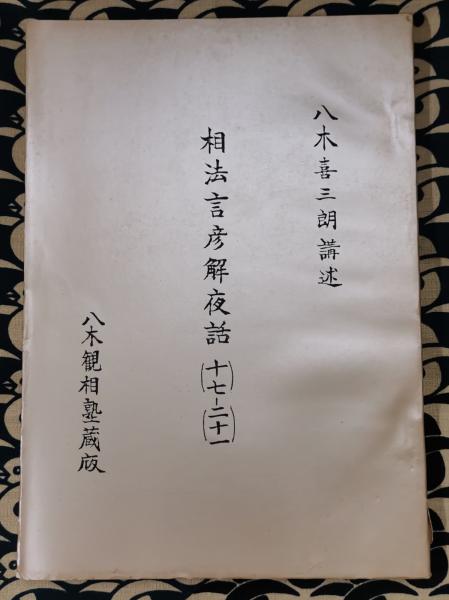 八木喜三朗講述
相法言彦解夜話(十七–二十一)
八木観相塾蔵版